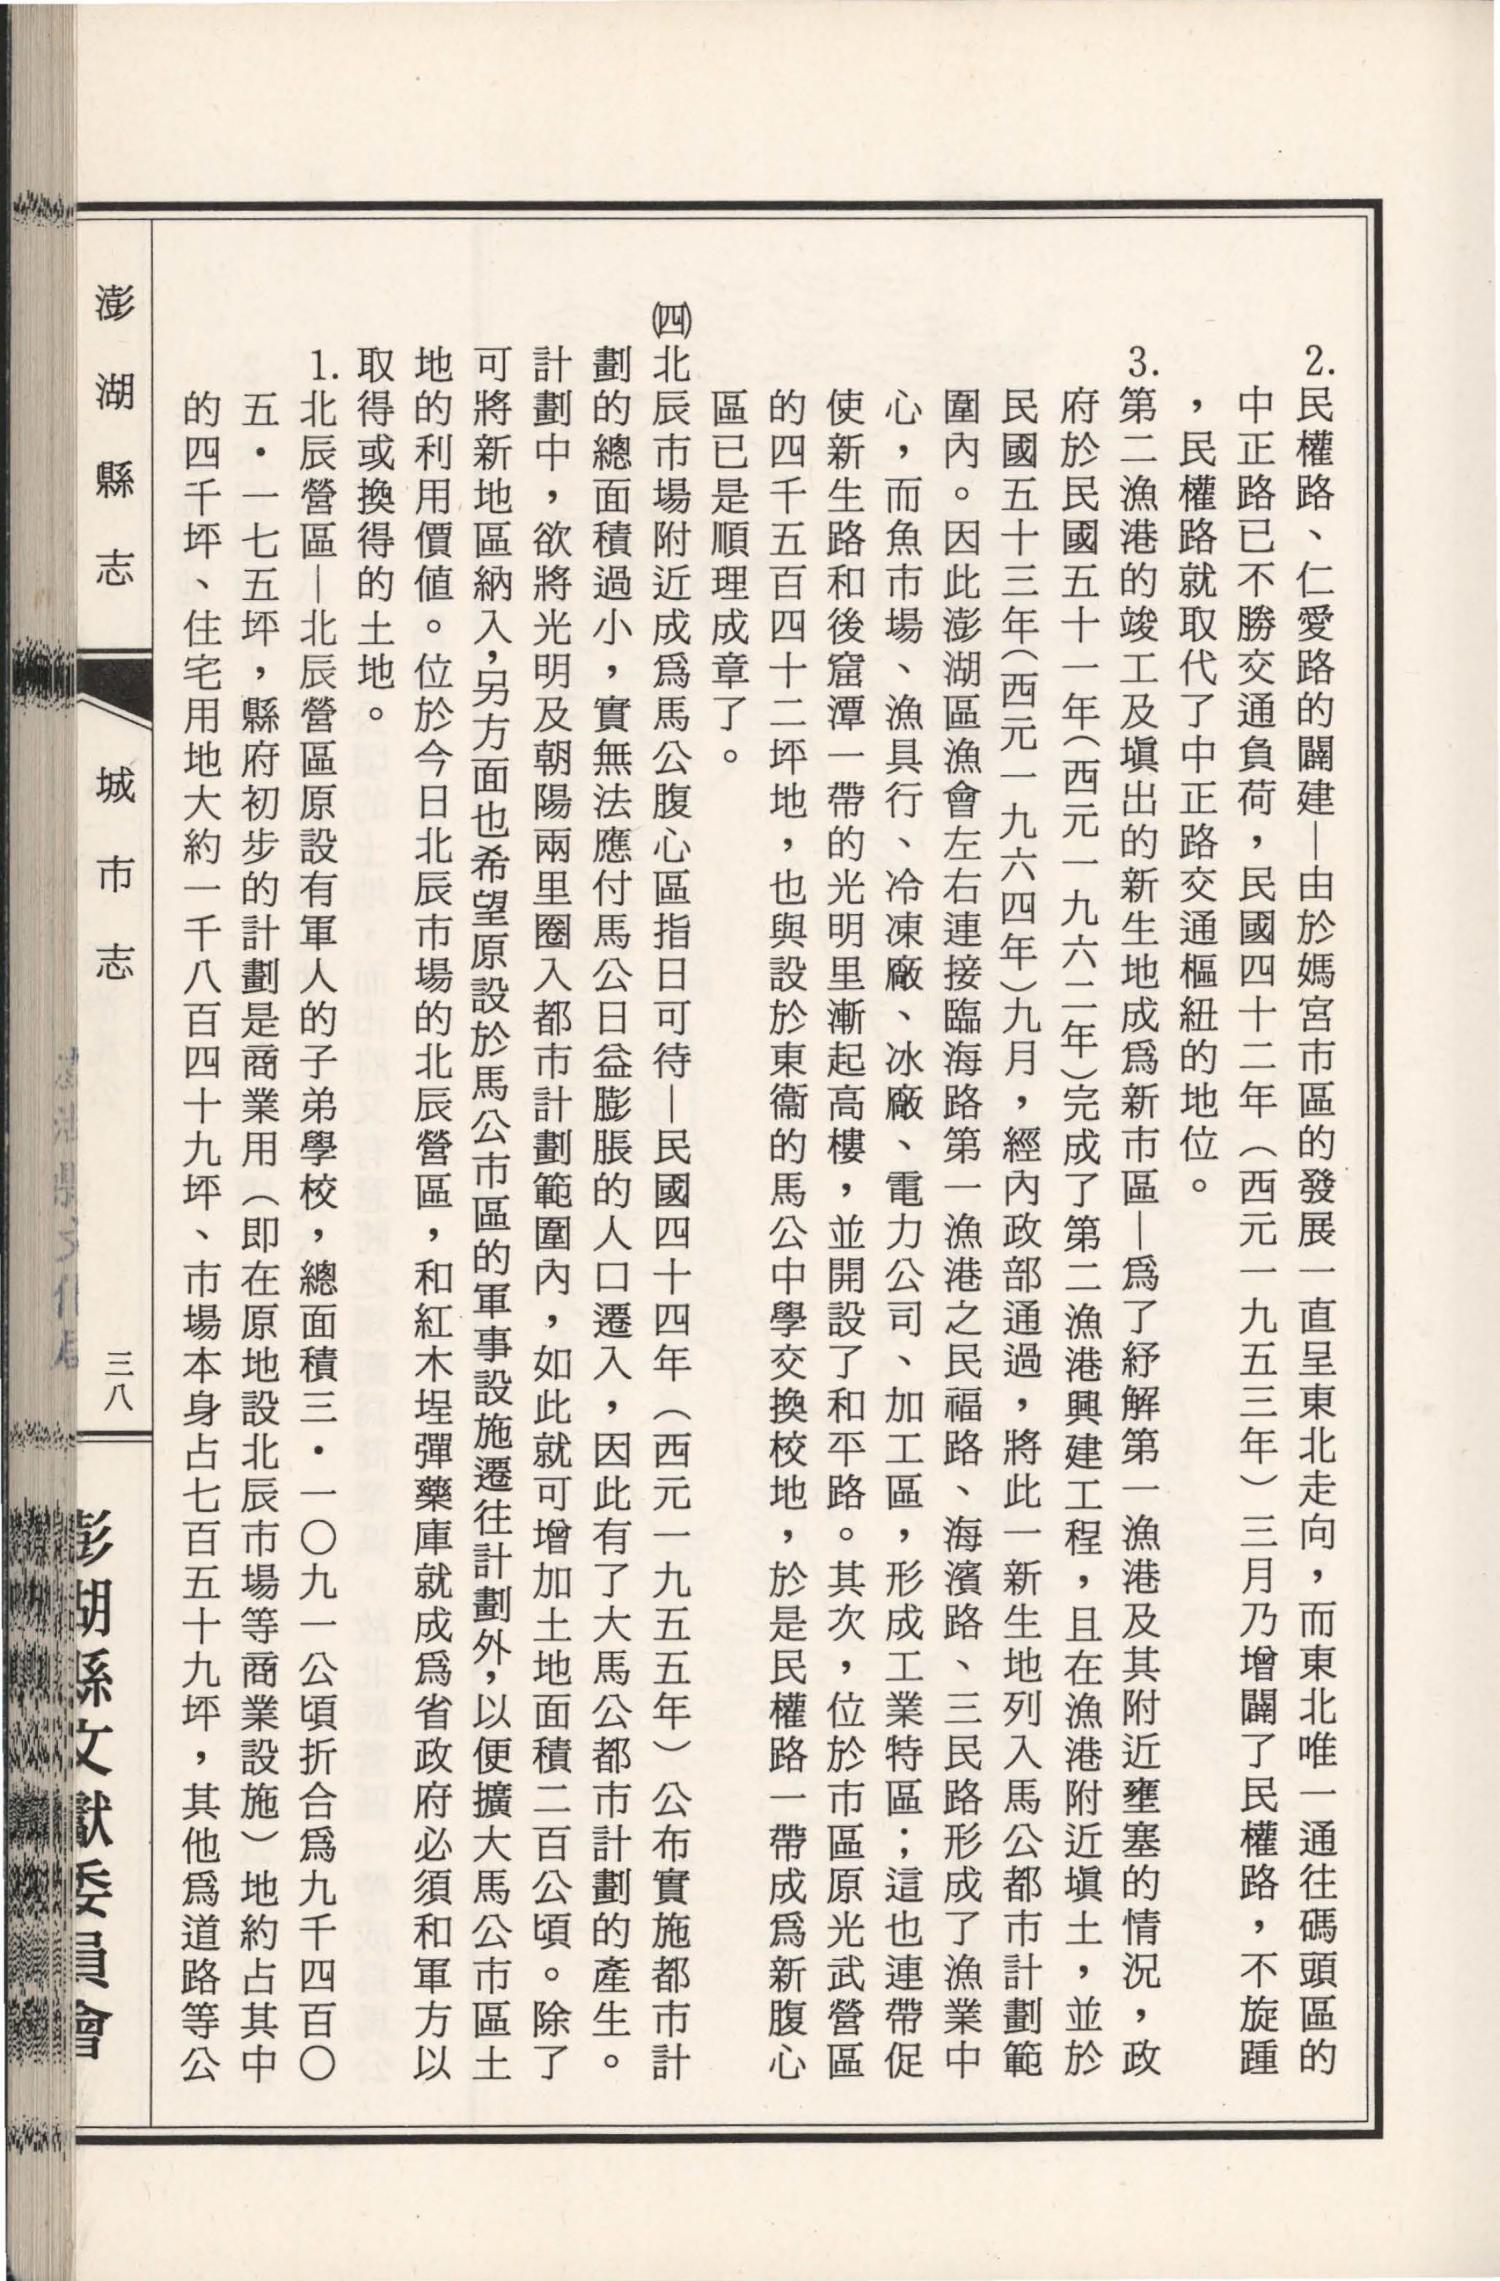 2.民權路、仁愛路的闢建—由於媽宮市區的發展一直呈東北走向，而東北唯一通往碼頭區的
中正路已不勝交通負荷，民國四十二年（西元一九五三年）三月乃增闢了民權路，不旋踵
，民權路就取代了中正路交通樞紐的地位。
3.第二漁港的竣工及塡出的新生地成爲新市區—爲了紓解第一漁港及其附近壅塞的情況，政
府於民國五十一年（西元一九六二年）完成了第二漁港興建工程，且在漁港附近塡土，並於
民國五十三年（西元一九六四年）九月，經內政部通過，將此一新生地列入馬公都市計劃範
圍內。因此澎湖區漁會左右連接臨海路第一漁港之民福路、海濱路、三民路形成了漁業中
心，而魚市場、漁具行、冷凍廠、冰廠、電力公司、加工區，形成工業特區；這也連帶促
使新生路和後窟潭一帶的光明里漸起高樓，並開設了和平路。其次，位於市區原光武營區
的四千五百四十二坪地，也與設於東衞的馬公中學交換校地，於是民權路一帶成爲新腹心
區已是順理成章了。
㈣北辰市場附近成爲馬公腹心區指日可待—民國四十四年（西元一九五五年）公布實施都市計
劃的總面積過小，實無法應付馬公日益膨脹的人口遷入，因此有了大馬公都市計劃的產生。
計劃中，欲將光明及朝陽兩里圈入都市計劃範圍內，如此就可增加土地面積二百公頃。除了
可將新地區納入，另方面也希望原設於馬公市區的軍事設施遷往計劃外，以便擴大馬公市區土
地的利用價值。位於今日北辰市場的北辰營區，和紅木埕彈藥庫就成爲省政府必須和軍方以
取得或換得的土地。
1.北辰營區—北辰營區原設有軍人的子弟學校，總面積三・一〇九一公頃折合爲九千四百〇
五・一七五坪，縣府初步的計劃是商業用（即在原地設北辰市場等商業設施）地約占其中
的四千坪、住宅用地大約一千八百四十九坪、市場本身占七百五十九坪，其他爲道路等公
澎湖縣志
城市志
三八
澎湖縣文獻委員會